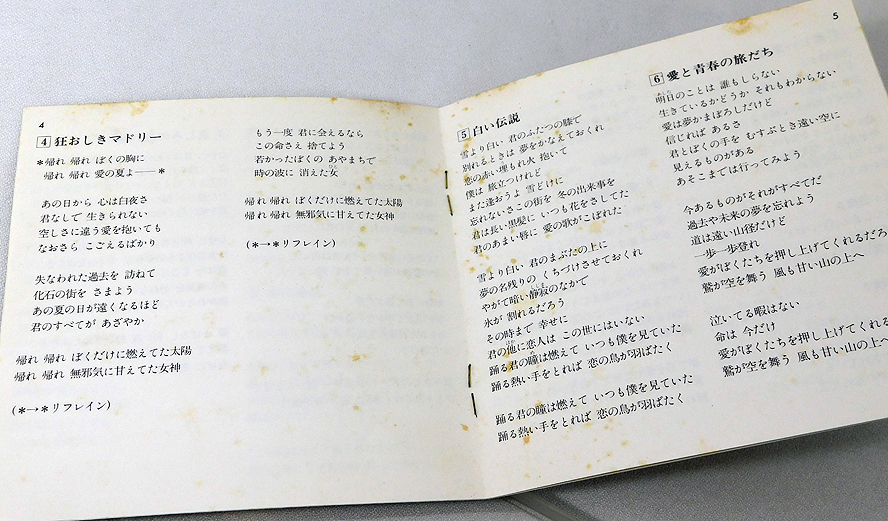 4
4 狂おしきマドリー
*帰れ 帰れ ぼくの胸に
帰れ 帰れ 愛の夏よ――*
あの日から 心は白夜さ
君なしで 生きられない
空しさに違う愛を抱いても
なおさら こごえるばかり
失なわれた過去を 訪ねて
化石の街を さまよう
あの夏の日が遠くなるほど
君のすべてが あざやか
帰れ 帰れ ぼくだけに燃えてた太陽
帰れ 帰れ 無邪気に甘えてた女神
(*→*リフレイン)
もう一度 君に会えるなら
この命さえ 捨てよう
若かったぼくの あやまちで
時の波に 消えた女
帰れ 帰れ ぼくだけに燃えてた太陽
帰れ 帰れ 無邪気に甘えてた女神
(*→*リフレイン)
5
5 白い伝説
雪より白い 君のふたつの膝で
別れるときは 夢をかなえておくれ
恋の赤い埋もれ火 抱いて
僕は 旅立つけれど
また逢おうよ 雪どけに
忘れないさこの街を 冬の出来事を
君は長い黒髪に いつも花をさしてた
君のあまい唇に 愛の歌がこぼれた
雪より白い 君のまぶたの上に
夢の名残りの くちづけさせておくれ
やがて暗い静寂のなかで
氷が 割れるだろう
その時まで 幸せに
君の他に恋人は この世にはいない
踊る君の瞳は燃えて いつも僕を見ていた
踊る熱い手をとれば 恋の鳥が羽ばたく
踊る君の瞳は燃えて いつも僕を見ていた
踊る熱い手をとれば 恋の鳥が羽ばたく
6 愛と青春の旅だち
明日のことは 誰もしらない
生きているかどうか それもわからない
愛は夢かまぼろしだけど
信じれば あるさ
君とぼくの手を むすぶとき遠い空に
見えるものがある
あそこまでは行ってみよう
今あるものがそれがすべてだ
過去や未来の夢を忘れよう
道は遠い山径だけど
一歩一歩登れ
愛がぼくたちを押し上げてくれるだろ
鷲が空を舞う 風も甘い山の上へ
泣いてる暇はない
命は 今だけ
愛がぼくたちを押し上げてくれる
鷲が空を舞う 風も甘い山の上へ